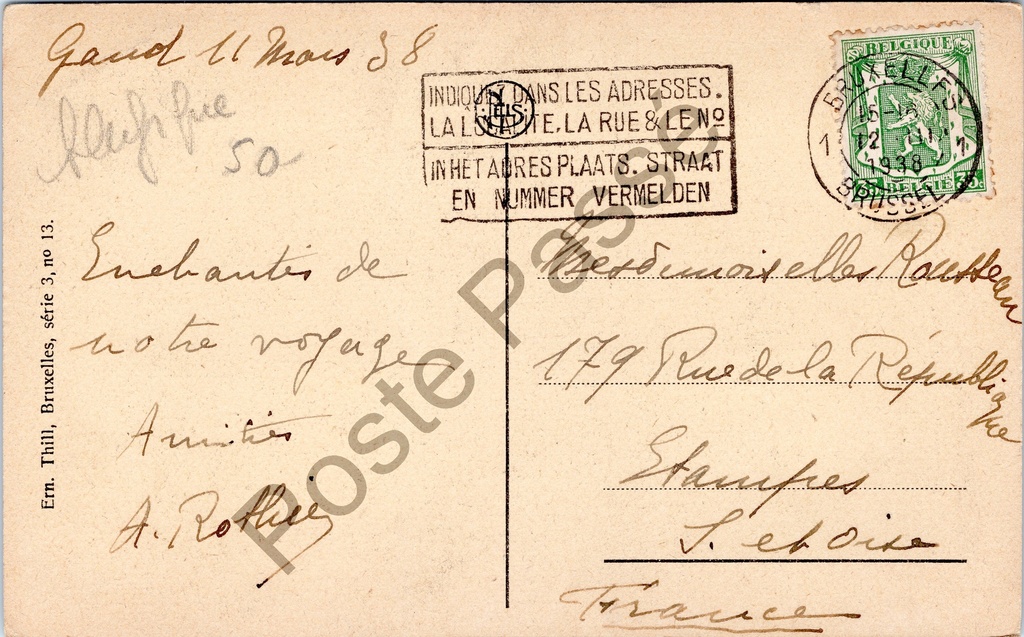 Gand 11 Mars 38
Belgique
50
INDIQUEZ DANS LES ADRESSES.
LA LOCALITE, LA RUE & LE No
IN HET ADRES PLAATS. STRAAT
EN NUMMER VERMELDEN
BELGIQUE
BRUXELLES
1 12 1
1938
BRUSSEL
35 BELGIË 35
Enchantés de
notre voyage
Amitiés
Mesdemoiselles Rousseau
179 Rue de la République
Etampes
S. et Oise
France
Ern. Thill, Bruxelles, série 3, nº 13.
Poste Passé